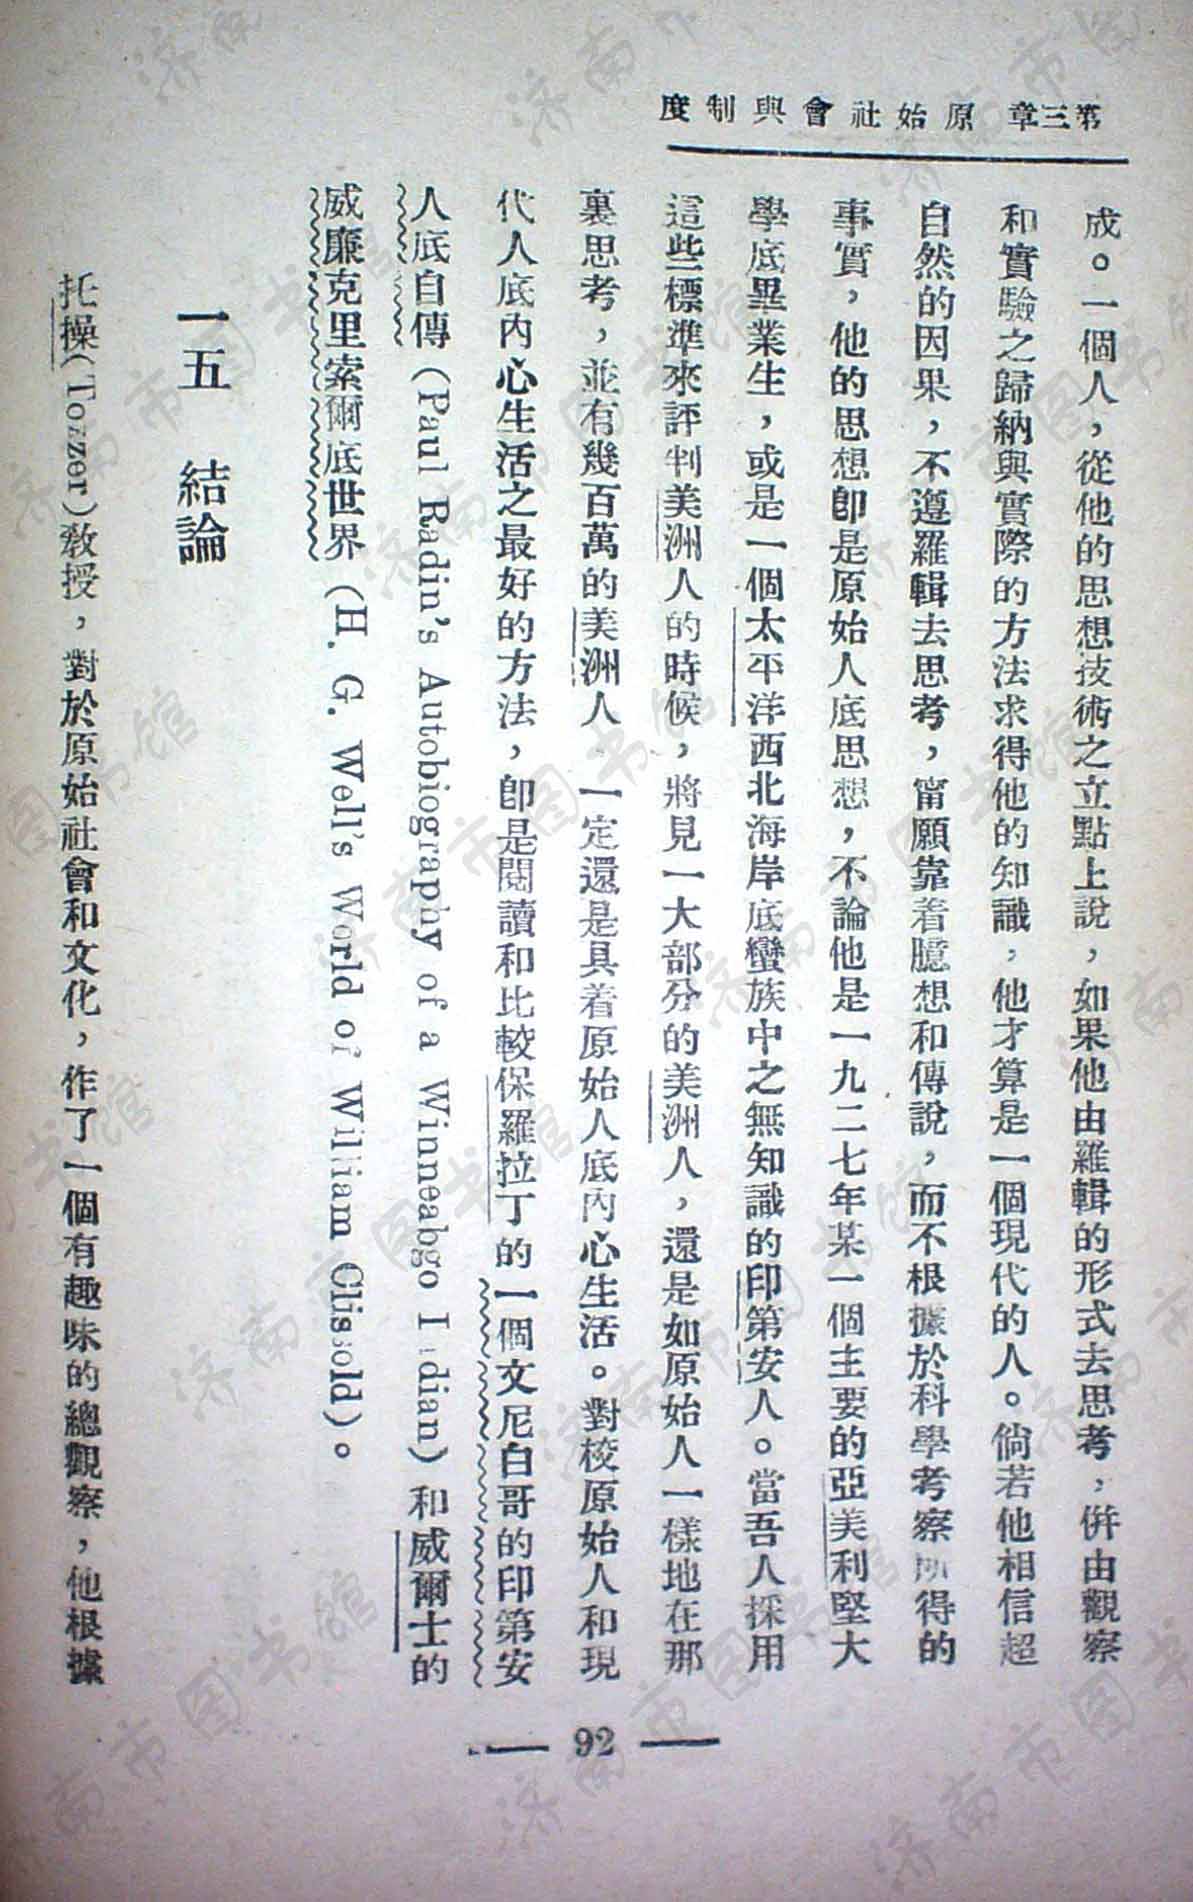 第三章 原始社會與制度
成。一個人，從他的思想技術之立點上說，如果他由羅輯的形式去思考，倂由觀察
和實驗之歸納與實際的方法求得他的知識，他才算是一個現代的人。倘若他相信超
自然的因果，不遵羅輯去思考，甯願靠着臆想和傳說，而不根據於科學考察所得的
事實，他的思想卽是原始人底思想，不論他是一九二七年某一個主要的亞美利堅大
學底畢業生，或是一個太平洋西北海岸底蠻族中之無知識的印第安人。當吾人採用
這些標準來評判美洲人的時候，將見一大部分的美洲人，還是如原始人一樣地在那
裏思考，並有幾百萬的美洲人，一定還是具着原始人底內心生活。對校原始人和現
代人底內心生活之最好的方法，卽是閱讀和比較保羅拉丁的一個文尼白哥的印第安
人底自傳（Paul Radin's Autobiography of a Winneabgo Indian）和威爾士的
威廉克里索爾底世界（H. G. Well's World of William Clissold）。
一五 結論
托操（Tozzer）教授，對於原始社會和文化，作了一個有趣味的總觀察，他根據
— 92 —
济南市图书馆